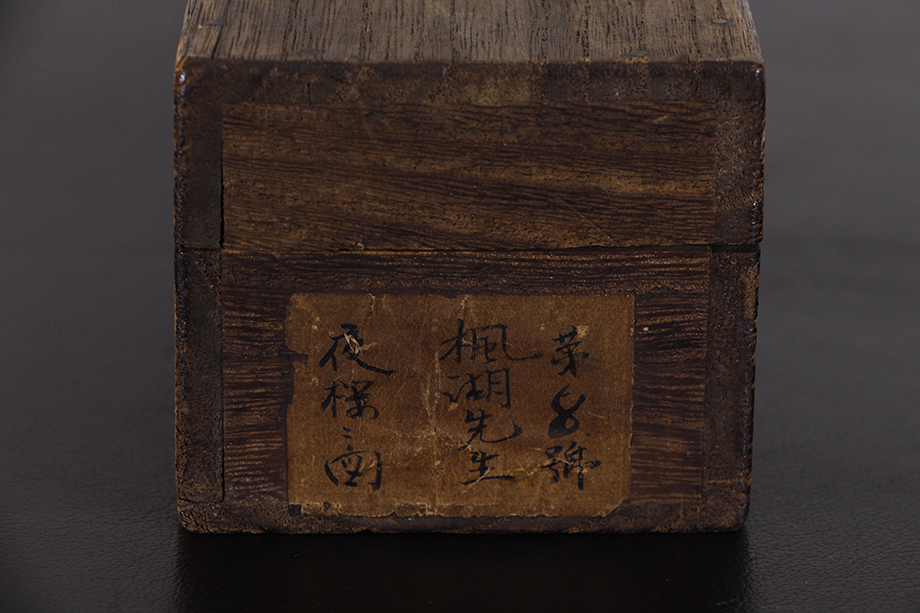 第8號
楓湖先生
夜桜之図